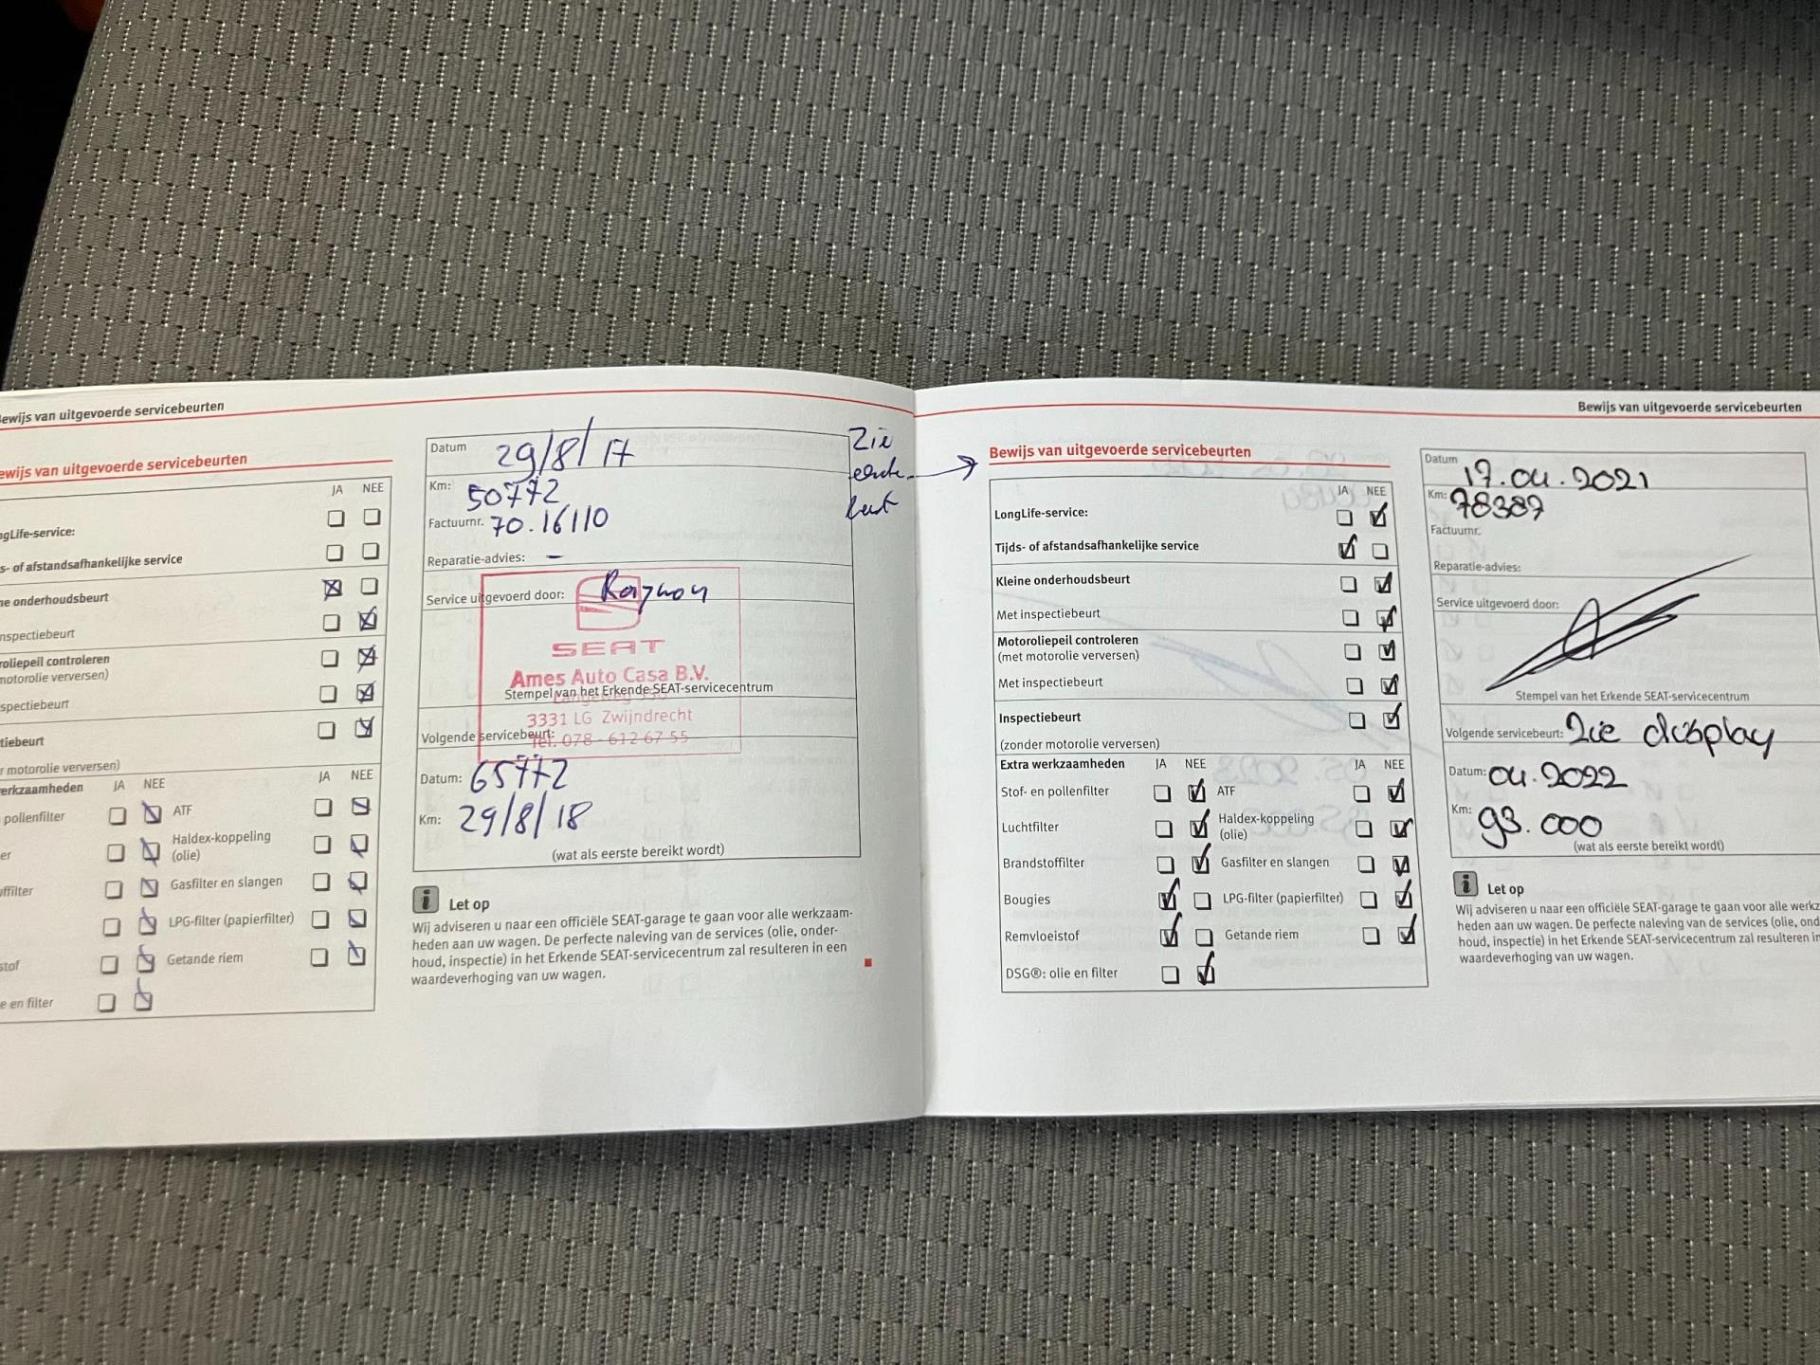 Bewijs van uitgevoerde servicebeurten
ewijs van uitgevoerde servicebeurten
JA NEE
ngLife-service:
s- of afstandsafhankelijke service
ne onderhoudsbeurt
nspectiebeurt
roliepeil controleren
motorolie verversen)
spectiebeurt
tiebeurt
r motorolie verversen)
erkzaamheden JA NEE JA NEE
pollenfilter ATF
er Haldex-koppeling
(olie)
ffilter Gasfilter en slangen
LPG-filter (papierfilter)
stof Getande riem
e en filter
Datum 29/8/17
Km: 50772
Factuurnr. 70.16110
Reparatie-advies: –
Service uitgevoerd door:
SEAT
Ames Auto Casa B.V.
Stempel van het Erkende SEAT-servicecentrum
3331 LG Zwijndrecht
Volgende servicebeurt:
Tel. 078 - 612 67 55
Datum: 65772
Km: 29/8/18
(wat als eerste bereikt wordt)
Let op
Wij adviseren u naar een officiële SEAT-garage te gaan voor alle werkzaam-
heden aan uw wagen. De perfecte naleving van de services (olie, onder-
houd, inspectie) in het Erkende SEAT-servicecentrum zal resulteren in een
waardeverhoging van uw wagen.
Zie
Bewijs van uitgevoerde servicebeurten
Bewijs van uitgevoerde servicebeurten
JA NEE
LongLife-service:
Tijds- of afstandsafhankelijke service
Kleine onderhoudsbeurt
Met inspectiebeurt
Motoroliepeil controleren
(met motorolie verversen)
Met inspectiebeurt
Inspectiebeurt
(zonder motorolie verversen)
Extra werkzaamheden JA NEE JA NEE
Stof- en pollenfilter ATF
Luchtfilter Haldex-koppeling
(olie)
Brandstoffilter Gasfilter en slangen
Bougies LPG-filter (papierfilter)
Remvloeistof Getande riem
DSG®: olie en filter
Datum 17.04.2021
Km: 78387
Factuurnr.
Reparatie-advies:
Service uitgevoerd door:
Stempel van het Erkende SEAT-servicecentrum
Volgende servicebeurt: Zie display
Datum: 04.2022
Km: 93.000
(wat als eerste bereikt wordt)
Let op
Wij adviseren u naar een officiële SEAT-garage te gaan voor alle werkz
heden aan uw wagen. De perfecte naleving van de services (olie, ond
houd, inspectie) in het Erkende SEAT-servicecentrum zal resulteren in
waardeverhoging van uw wagen.